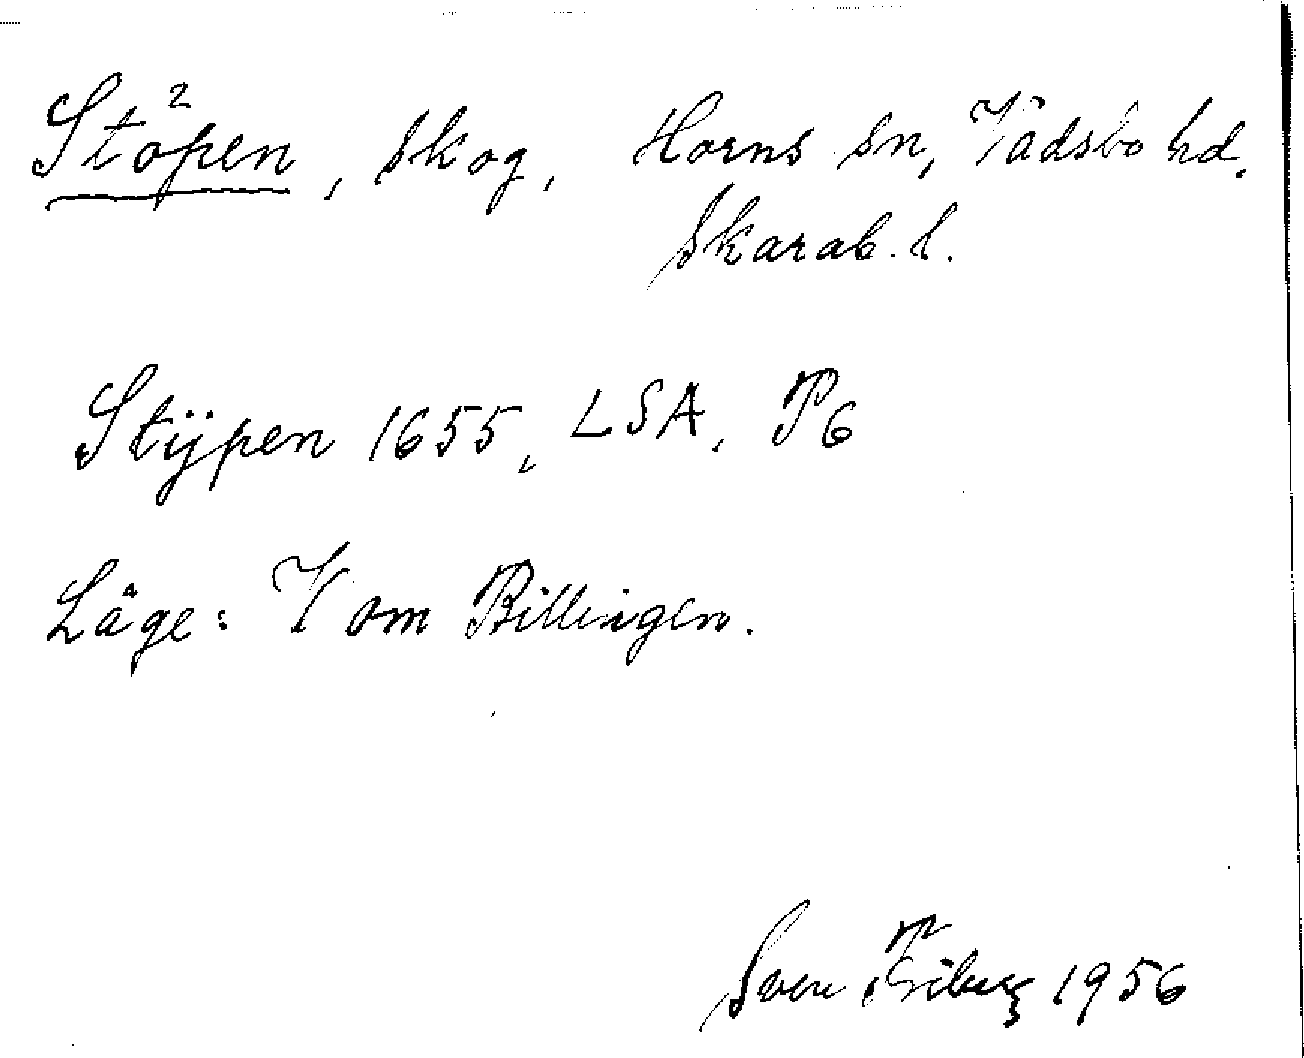 Stöpen², skog, Horns sn, Vadsbo hd.
Skarab. l.
Stÿpen 1655, LSA, P6
Läge: V om Billingen.
Sven Friberg 1956